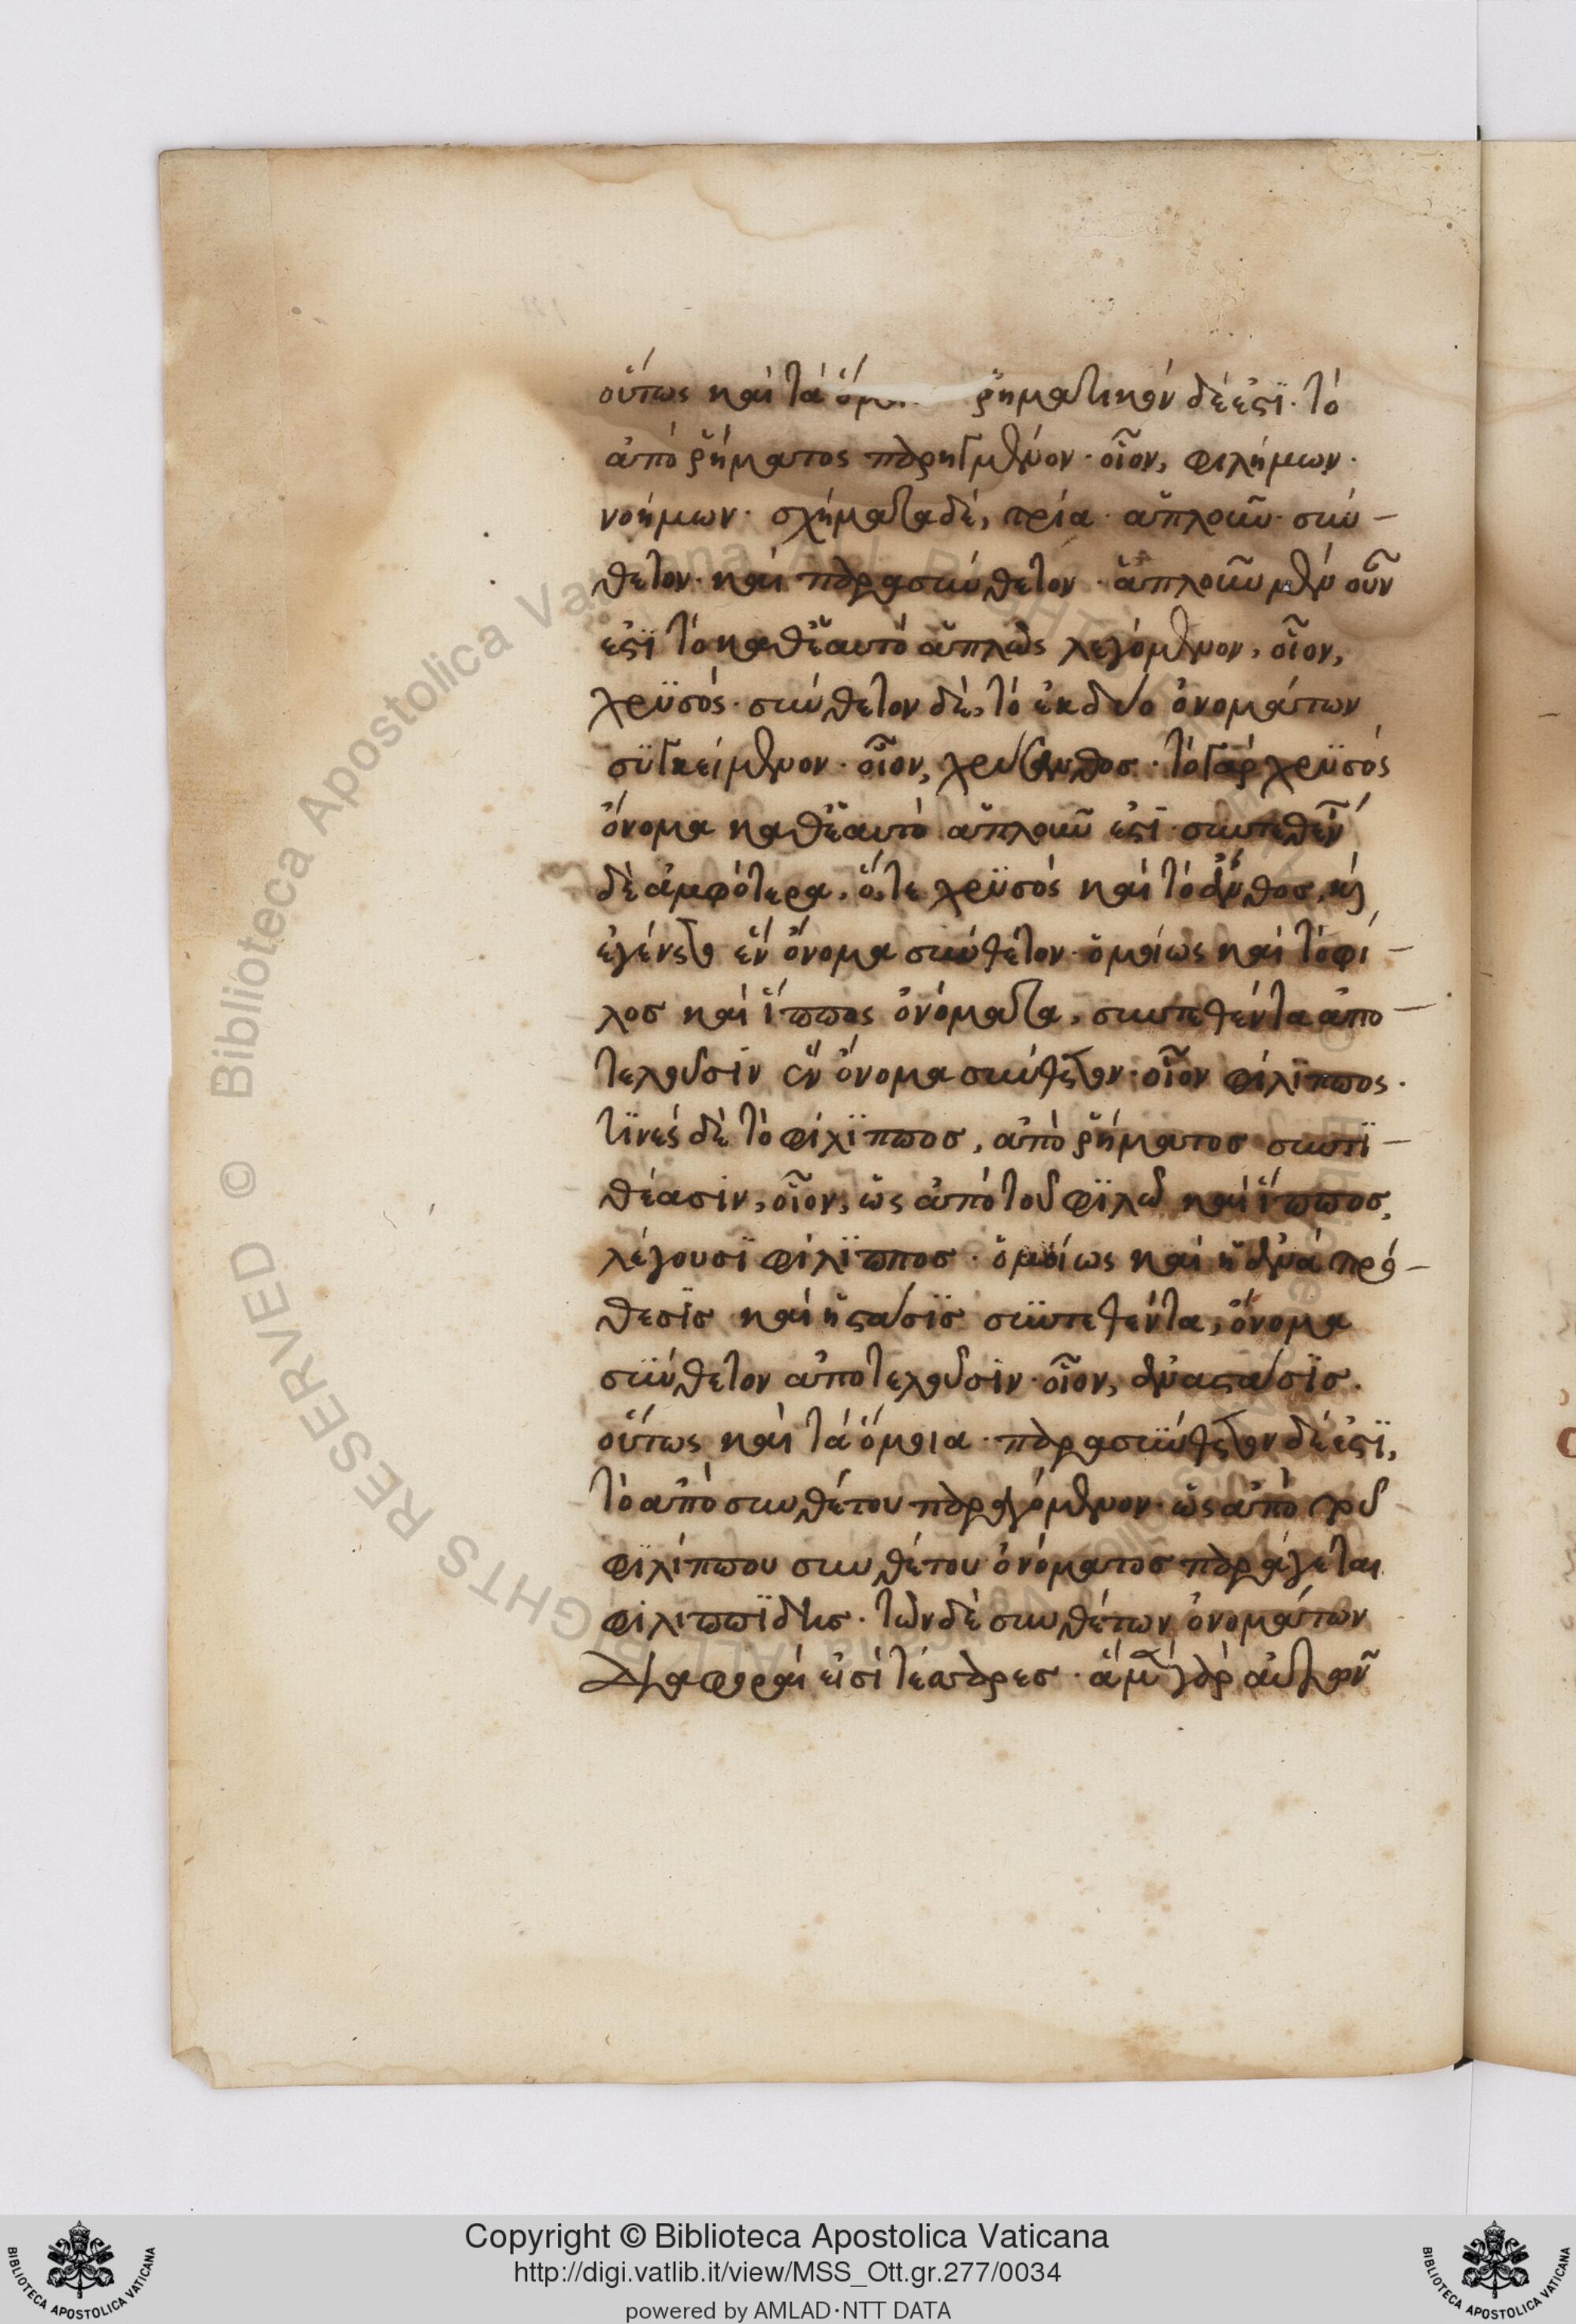 οὕτως καὶ τὰ ὅμ ῥηματικὸν δέ ἐστὶ· τὸ
ἀπὸ ῥήματος παρηγμένον· οἷον, φιλήμων·
νοήμων· σχήματα δὲ, τρία· ἁπλοῦν· σύν-
θετον· καὶ παρασύνθετον· ἁπλοῦν μὲν οὖν
ἐστὶ τὸ καθ' ἑαυτὸ ἁπλῶς λεγόμενον, οἷον,
χρϋσός· σύνθετον δὲ, τὸ ἐκ δύο ὀνομάτων
σϋγκείμενον· οἷον, χρύσανθος· τὸ γὰρ χρϋσός
ὄνομα καθ' ἑαυτὸ ἁπλοῦν ἐστί· συντεθέν
δὲ ἀμφότερα, ὅ, τε χρϋσός καὶ τὸ ἄνθος, καὶ
ἐγένετο ἓν ὄνομα σύνθετον· ὁμοίως καὶ τὸ φί-
λος καὶ ἵππος ὀνόματα, συντεθέντα ἀπο-
τελοῦσιν ἓν ὄνομα σύνθετον· οἷον φίλιππος·
τϊνὲς δὲ τὸ φίλϊππος, ἀπὸ ῥήματος συντϊ-
θέασιν, οἷον, ὡς ἀπὸ τοῦ φϊλῶ καὶ ἵππος,
λέγουσϊ φίλϊππος· ὁμοίως καὶ ἡ ἀνὰ πρό-
θεσϊς καὶ ἡ στάσϊς σϋντεθέντα, ὄνομα
σϋνθετον ἀποτελοῦσιν· οἷον, ἀνάστασϊς·
οὕτως καὶ τὰ ὅμοια· παρασϋνθετον δέ ἐστϊ,
τὸ ἀπὸ συνθέτου παραγόμενον· ὡς ἀπὸ τοῦ
φϊλίππου συνθέτου ὀνόματος παράγεται
φιλιππϊδης· τῶν δὲ συνθέτων ὀνομάτων
διαφοραὶ εἰσὶ τέσσαρες· ἃ μὲν γὰρ αὐτῶν
Copyright © Biblioteca Apostolica Vaticana
http://digi.vatlib.it/view/MSS_Ott.gr.277/0034
powered by AMLAD·NTT DATA